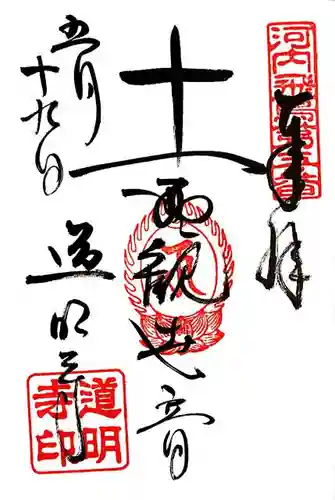 河内飛鳥
奉拝
十一面観世音
五月
十九日
道明寺
道明
寺印